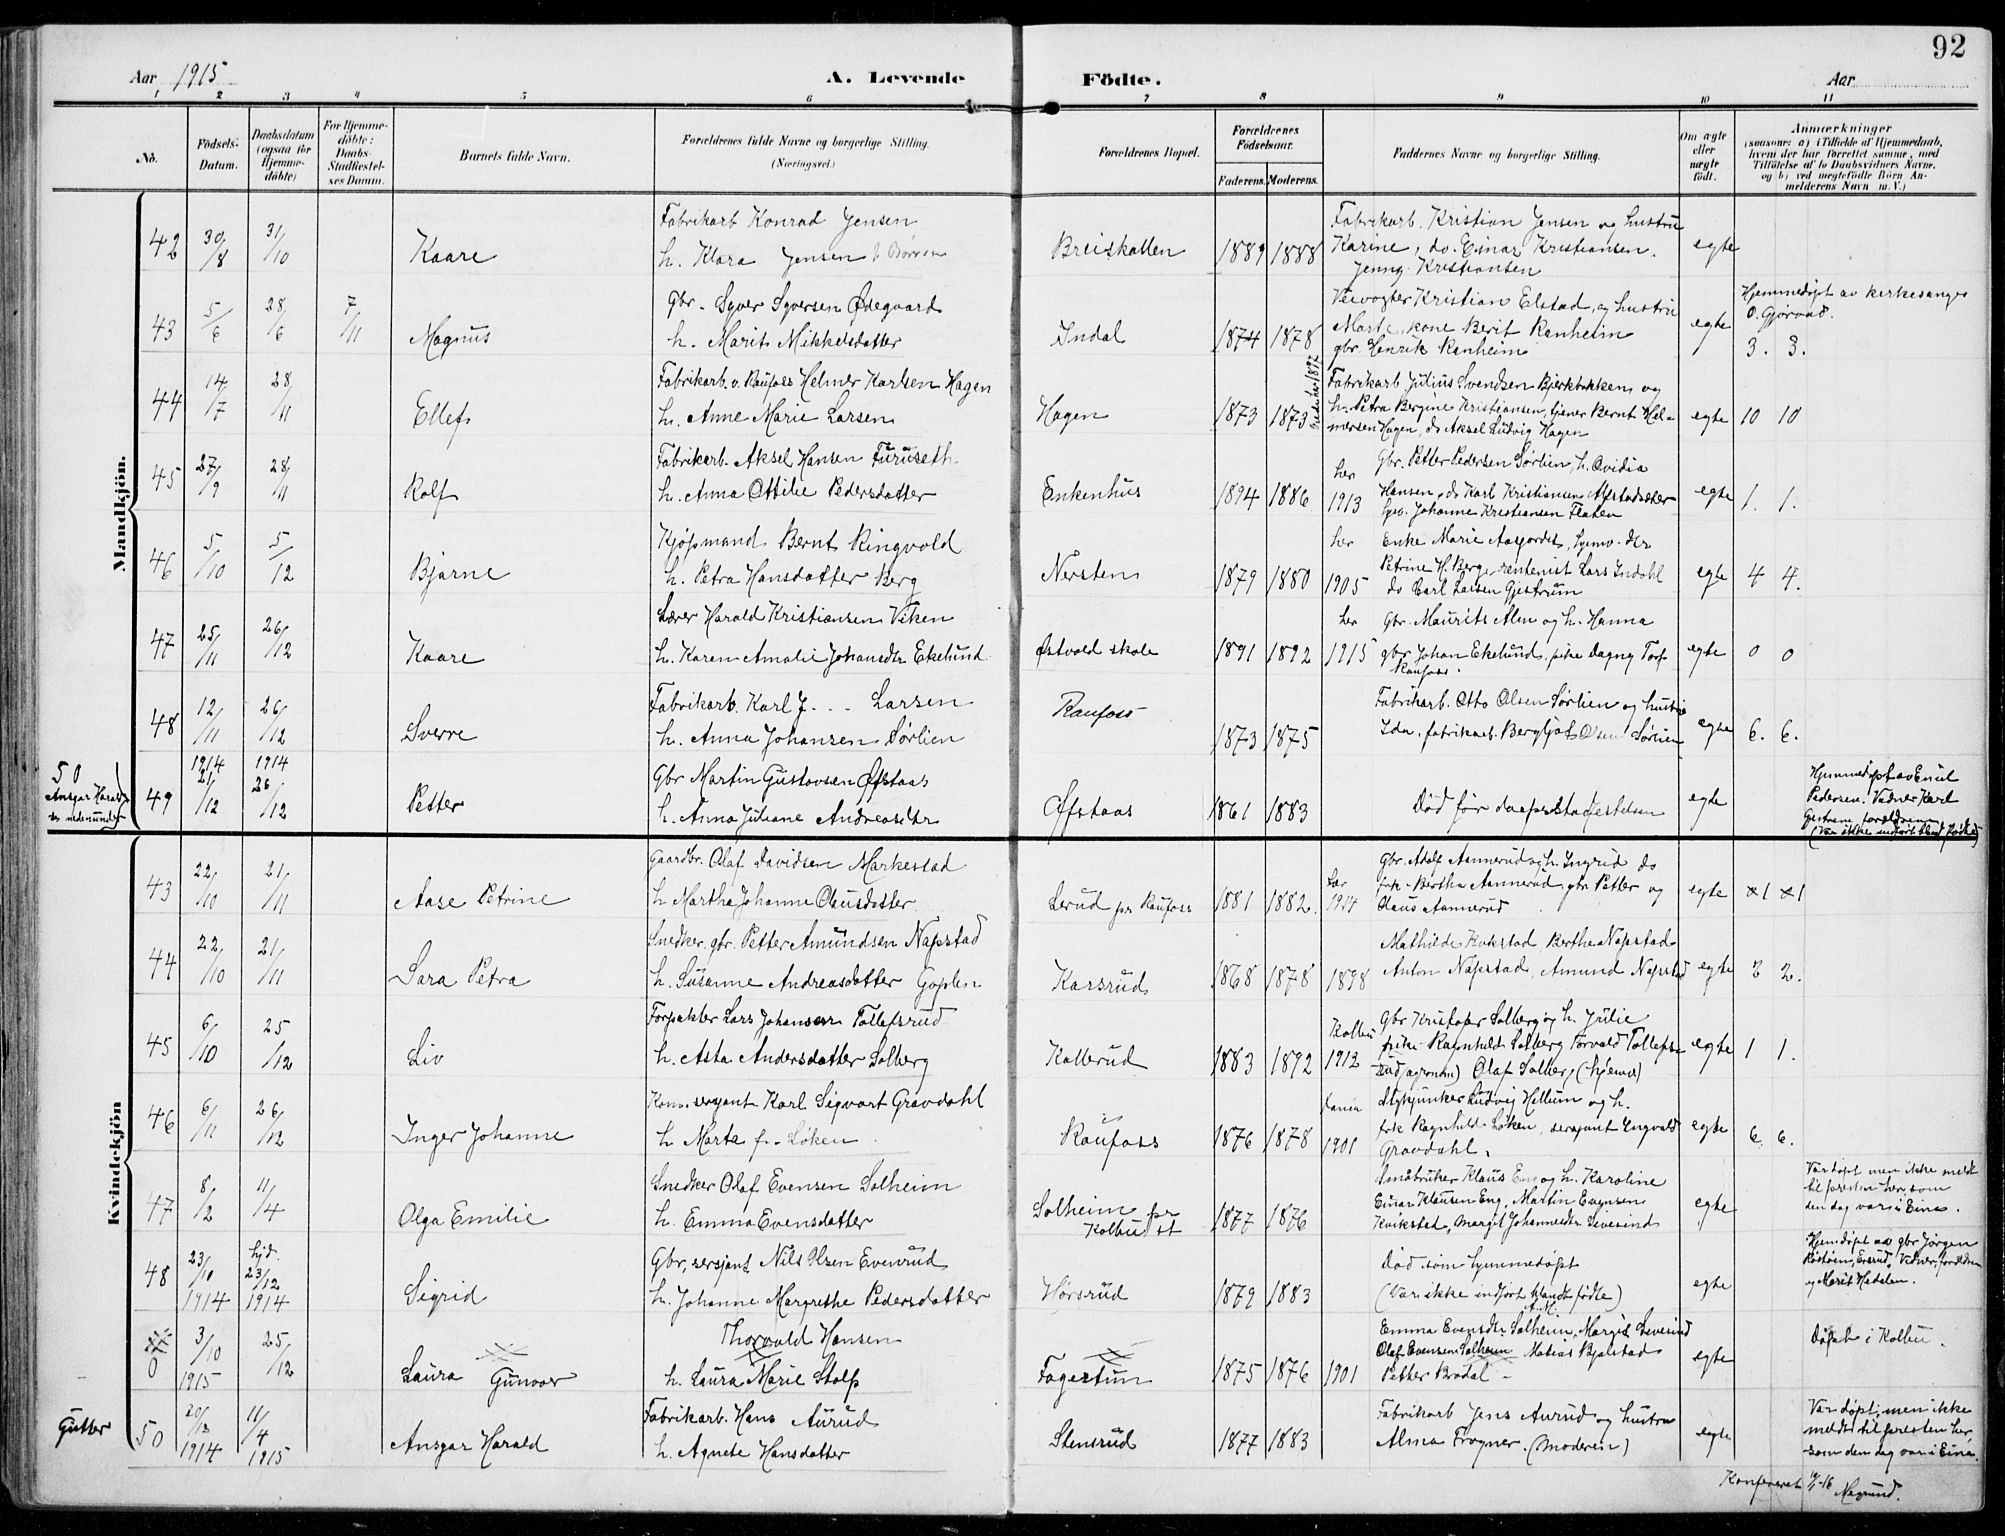 92
Aar 1915 A. Levende Födte. Aar
1 2 3 4 5 6 7 8 9 10 11
No. Födsels-Datum. Daabsdatum (ogsaa for Hjemmedöbte) For Hjemmedöbte: Daabs-Stadfæstelses Datum. Barnets fulde Navn. Forældrenes fulde Navne og borgerlige Stilling. (Næringsvei.) Forældrenes Bopæl. Forældrenes Födselsaar. Faderens. Moderens. Faddernes Navne og borgerlige Stilling. Om ægte eller uægte födt. Anmærkninger
(saasom: a) i Tilfælde af Hjemmedaab, hvem der har forrettet samme, med Tilföielse af to Daabsvidners Navne, og b) ved uegtefödte Börn Anmelderens Navn m. V.)
Mandkjön.
Fabrikarb Konrad Jensen Fabrikarb. Kristian Jensen og hustru
42 30/8 31/10 Kaare h. Klara Jensen Breiskallen 1889 1888 Karine, do. Einar Kristiansen. egte
Jenny Kristiansen
Gbr. Syver Syversen Ødegaard Veivogter Kristian Elstad og hustru Hjemmedøpt av kirkesanger
43 5/6 28/6 7/11 Magnus h. Marit Mikkelsdatter Indal 1874 1878 Marte, kone Berit Ranheim egte O. Gjørvad.
gbr. Henrik Ranheim 3. 3.
Fabrikarb. v. Raufoss Helmer Karlsen Hagen Fabrikarb Julius Svendsen Bjerkbakken og
44 14/7 28/11 Ellef h. Anne Marie Larsen Hagen 1873 1873 h. Petra Bergine Kristiansen, tjener Bernt Hel- egte 10 10
mersen Hagen, do Aksel Ludvig Hagen
Fabrikarb. Aksel Hansen Furuseth her Gbr. Petter Pedersen Sørlien, h. Ovidia
45 27/9 28/11 Rolf h. Anna Otilie Pedersdatter Enkenhus 1894 1886 1913 Hansen, do Karl Kristiansen egte 1. 1.
Johanne Kristiansen Flaten
Kjøpmand Bernt Ringvold her Enke Marie Aasjordet,
46 5/10 5/12 Bjarne h. Petra Hansdatter Berg Nersten 1879 1880 1905 Petrine H. Berg, rentenist Lars Indahl egte 4 4.
do Carl Larsen Gjestrum
Lærer Harald Kristiansen Viken her Gbr. Maurits Alm og h. Hanna
47 25/11 26/12 Kaare h. Karen Amalie Johansdtr Ekelund Østvold skole 1891 1892 1915 gbr Johan Ekelund, pike Dagny Torf egte 0 0
Raufoss.
Fabrikarb. Karl J. . . Larsen Raufoss Fabrikarb. Otto Olsen Sørlien og hustru
48 12/11 26/12 Sverre h. Anna Johansen Sørlien 1873 1875 Ida, fabrikarb. Bergljot Olsen Sørlien egte 6. 6.
50 Ansgar Harald se nedenunder
1914 1914 Gbr Martin Gustavsen Øfstaas Hjemmedøpt av Emil
49 21/12 26/12 Petter h. Anna Juliane Andreasdtr Øfstaas 1861 1883 Død før daapsstadfestelsen egte Pedersen. Vidner Karl
Gjestrum, forældrene
(Var ikke indført bland fødte)
Kvindekjön
Gaardbr. Olaf Davidsen Markestad Gbr. Adolf Aannerud og h. Ingrid do
43 22/10 21/11 Aase Petrine h Martha Johanne Olausdatter Lerud pr Raufoss 1881 1882. 1914 frk. Bertha Aannerud, gbr Petter og egte 1 1
Olaus Aannerud
Snedker. gbr. Petter Amundsen Napstad Mathilde Kokstad Berthe Napstad
44 22/10 21/11 Sara Petra h. Susanne Andreasdatter Goplen Karsrud 1868 1878 1898 Anton Napstad, Amund Napstad egte 2 2.
Forpakter Lars Johansen Tollefsrud Kolbu Gbr Kristofer Solberg og h. Julie
45 6/10 25/12 Liv h. Asta Andersdatter Solberg Kallerud 1883 1892 1912 pike Ragnhild Solberg Torvald Tollefs- egte 1 1.
rud (agronom) Olaf Solberg (hjemme)
Kom. sersjant Karl Sigvart Gravdahl Kania Stykjunker Ludvig Hellum og h.
46 6/11 26/12 Inger Johanne h Marta f. Løken Raufoss 1876 1878 1901 frk Ragnhild Løken, sersjant Engvald egte 6. 6.
Gravdahl.
Snedker Olaf Evensen Solheim Småbruker Klaus Eng og h. Karoline Var døpt men ikke meldt
47 8/2 11/4 Olga Emilie h. Emma Evensdatter Solheim pr Kolbu st 1877 1876 Einar Klausen Eng, Martin Evensen egte til presten her, som
Kvikstad, Margit Johannesdtr Sivesind den dag var i Eina.
hjd. Gbr, sersjant Nils Olsen Evenrud Død som hjemmedøpt Hjemdøpt av gbr Jørgen
48 23/10 1914 23/12 1914 Sigrid h. Johanne Margrethe Pedersdatter Hørsrud 1879 1883 (Var ikke indført blandt fødte) egte
og Marit Hadelen.
Thorvald Hansen Emma Evensdtr Solheim, Margit Sivesind Døbt i Kolbu.
0 3/10 1915 25/12 Laura Gunvor h. Laura Marie Stolp Fagertun 1875 1876 1901 Olaf Evensen Solheim Matias Bjølstad egte
Petter Brødal
Gutter Fabrikarb. Hans Aurud Fabrikarb Jens Aurud og hustru Var døpt, men ikke
50 20/12 1914 11/4 1915 Ansgar Harald h. Agnete Hansdatter Stensrud 1877 1883 Alma Frogner. (Moderen) egte meldt til presten her,
som den dag var i Eina.
Konfereret